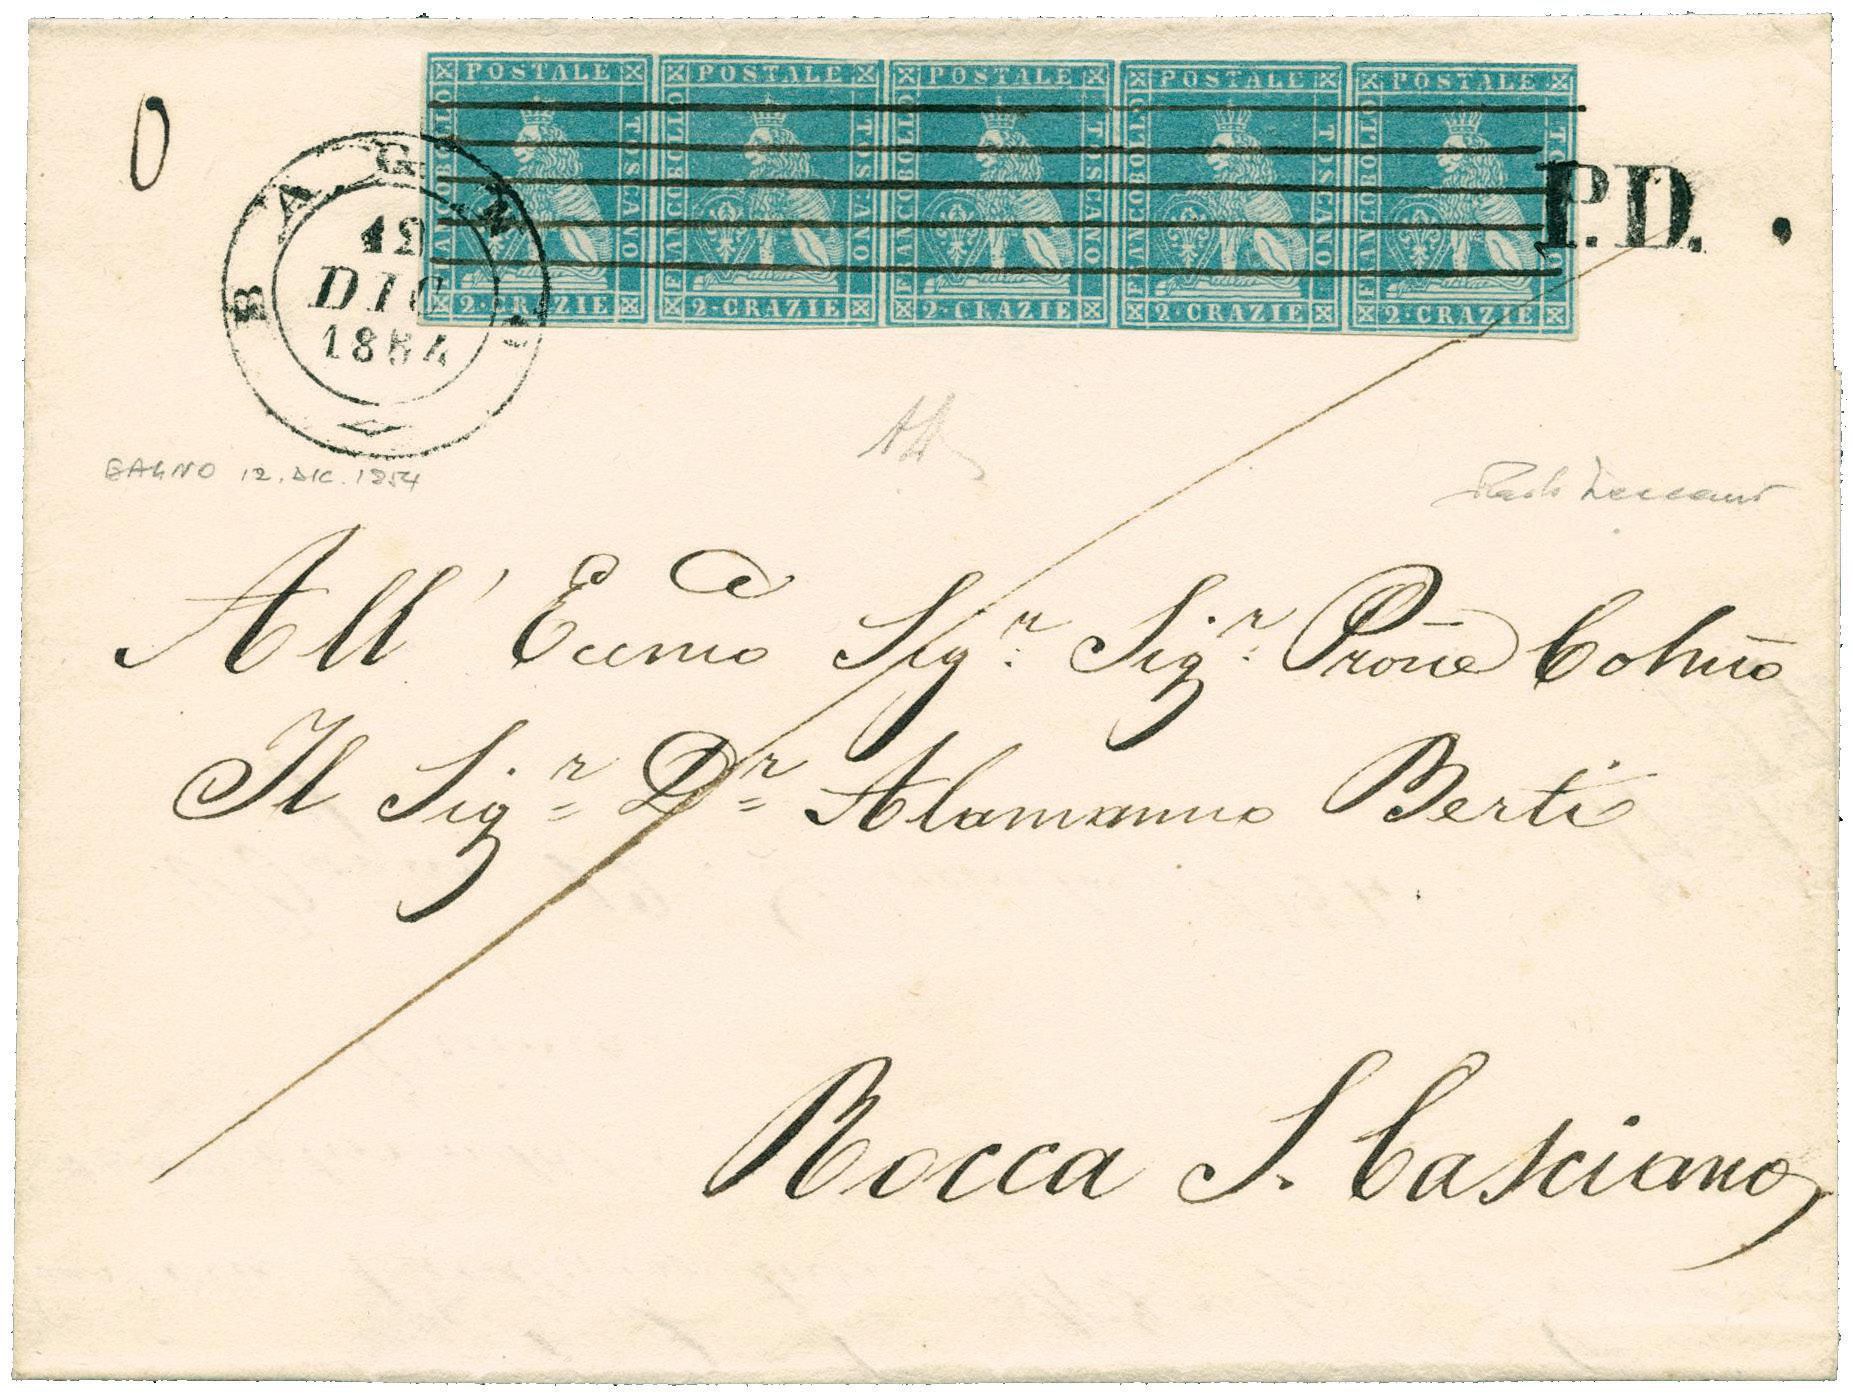 POSTALE POSTALE POSTALE POSTALE POSTALE
FRANCOBOLLO TOSCANO FRANCOBOLLO TOSCANO FRANCOBOLLO TOSCANO FRANCOBOLLO TOSCANO FRANCOBOLLO TOSCANO
2·CRAZIE 2·CRAZIE 2·CRAZIE 2·CRAZIE 2·CRAZIE
0
BAGNO
12
DIC
1854
P.D.
BAGNO 12. DIC. 1854
All' Eccmo Sigr. Sigr. Prōne Colmō
Il Sigr= Dr= Alamanno Berti
Rocca S. Casciano